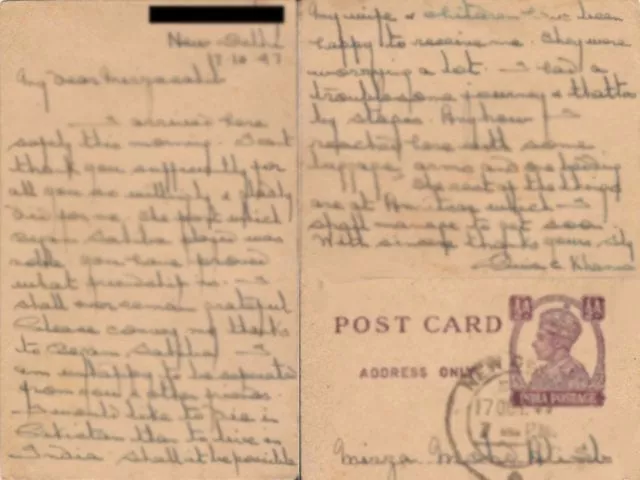 New Delhi
17.10.47
My dear Mirzasahib
I arrived here
safely this morning. I can't
thank you sufficiently for
all you so willingly & 
did for me. The part which
Begum Sahiba played was
noble. You have proved
what friendship is. I
shall ever remain grateful
Please convey my thanks
to Begum Sahiba. I
am unhappy to be separated
from you & other friends.
I would like to die in
Pakistan than to live in
India. Shall it be possible
My wife & children have been
happy to receive me. They were
worrying a lot. I had a
troublesome journey & that too
by stages. Anyhow I
reached here with some
luggage, arms and one bedding
The rest of the things
are at Amritsar which I
shall manage to get soon
With sincere 
Khanna
POST CARD
ADDRESS ONLY
INDIA POSTAGE
NEW
17 OCT. 47
7
Mirza